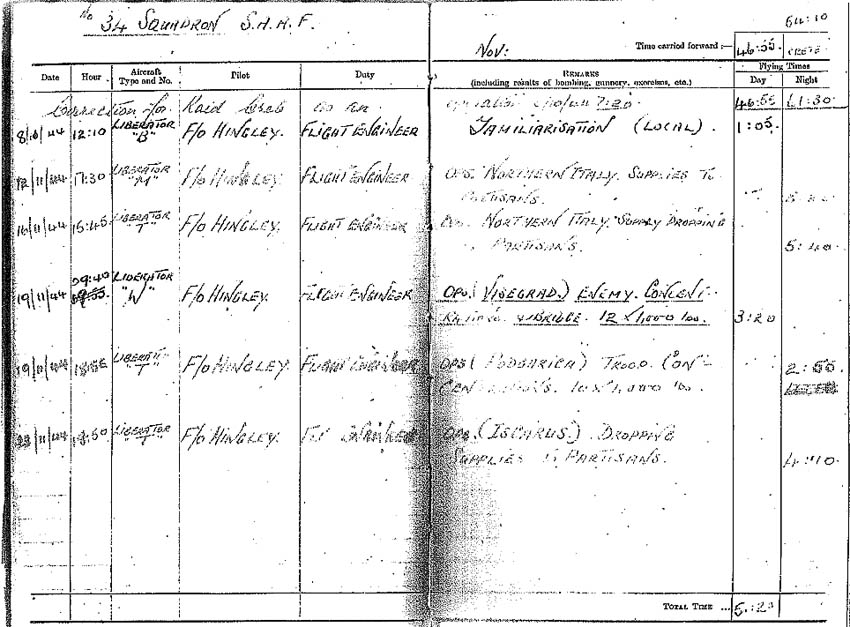 No 34 SQUADRON S.A.A.F. 64:10
Nov: Time carried forward :— 46:55
Flying Times
Date Hour Aircraft Type and No. Pilot Duty REMARKS (including results of bombing, gunnery, exercises, etc.) Day Night
Correction for Raid 7:20. 46:55 61:30
8/11/44 12:10 LIBERATOR "B" F/o HINGLEY. FLIGHT ENGINEER FAMILIARISATION (LOCAL). 1:05.
12/11/44 17:30 LIBERATOR "M" F/o HINGLEY. FLIGHT ENGINEER OPS. NORTHERN ITALY. SUPPLIES TO
PARTISANS.
16/11/44 15:45 LIBERATOR "T" F/o HINGLEY. FLIGHT ENGINEER OPS. NORTHERN ITALY. SUPPLY DROPPING
PARTISANS. 5:40
19/11/44 09:40 LIBERATOR "W" F/o HINGLEY. FLIGHT ENGINEER OPS. (VISEGRAD.) ENEMY. CONCENT-
BRIDGE. 12 X 1,000 lb. 3:20
19/11/44 LIBERATOR "T" F/o HINGLEY. FLIGHT ENGINEER OPS (PODGARICA) TROOP. CON-
CENTRATIONS. 10 x 1,000 lb. 2:55
23/11/44 18:50 LIBERATOR "T" F/o HINGLEY. OPS. (ISCARUS.) DROPPING
SUPPLIES PARTISANS. 4:10
TOTAL TIME ... 5:20